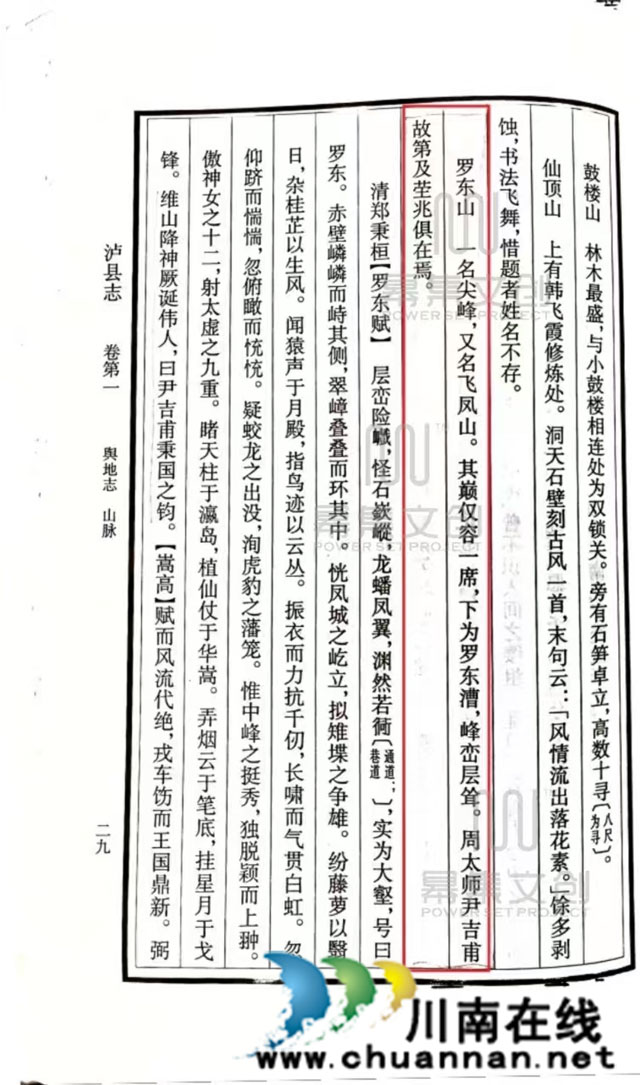 鼓楼山　林木最盛，与小鼓楼相连处为双锁关。旁有石笋卓立，高数十寻〔八尺为寻〕。
仙顶山　上有韩飞霞修炼处。洞天石壁刻古风一首，末句云：「风情流出落花素。」馀多剥
蚀，书法飞舞，惜题者姓名不存。
罗东山　一名尖峰，又名飞凤山。其巅仅容一席，下为罗东漕，峰峦层耸。周太师尹吉甫
故第及茔兆俱在焉。
清郑秉桓【罗东赋】　层峦险巇，怪石嵚嵷，龙蟠凤翼，渊然若衕〔通道；巷道〕，实为大壑，号曰
罗东。赤壁嶙嶙而峙其侧，翠嶂叠叠而环其中。恍凤城之屹立，拟雉堞之争雄。纷藤萝以翳
日，杂桂芷以生风。闻猿声于月殿，指鸟迹以云丛。振衣而力抗千仞，长啸而气贯白虹。忽
仰跻而惴惴，忽俯瞰而恍恍。疑蛟龙之出没，洵虎豹之藩笼。惟中峰之挺秀，独脱颖而上翀。
傲神女之十二，射太虚之九重。睹天柱于瀛岛，植仙仗于华嵩。弄烟云于笔底，挂星月于戈
锋。维山降神厥诞伟人，曰尹吉甫秉国之钧。【嵩高】赋而风流代绝，戎车饬而王国鼎新。弼
泸县志　卷第一　舆地志　山脉
二九
幂集文创
POWER SET PROJECT
幂集文创
POWER SET PROJECT
幂集文创
POWER SET PROJECT
川南在线
www.chuannan.net